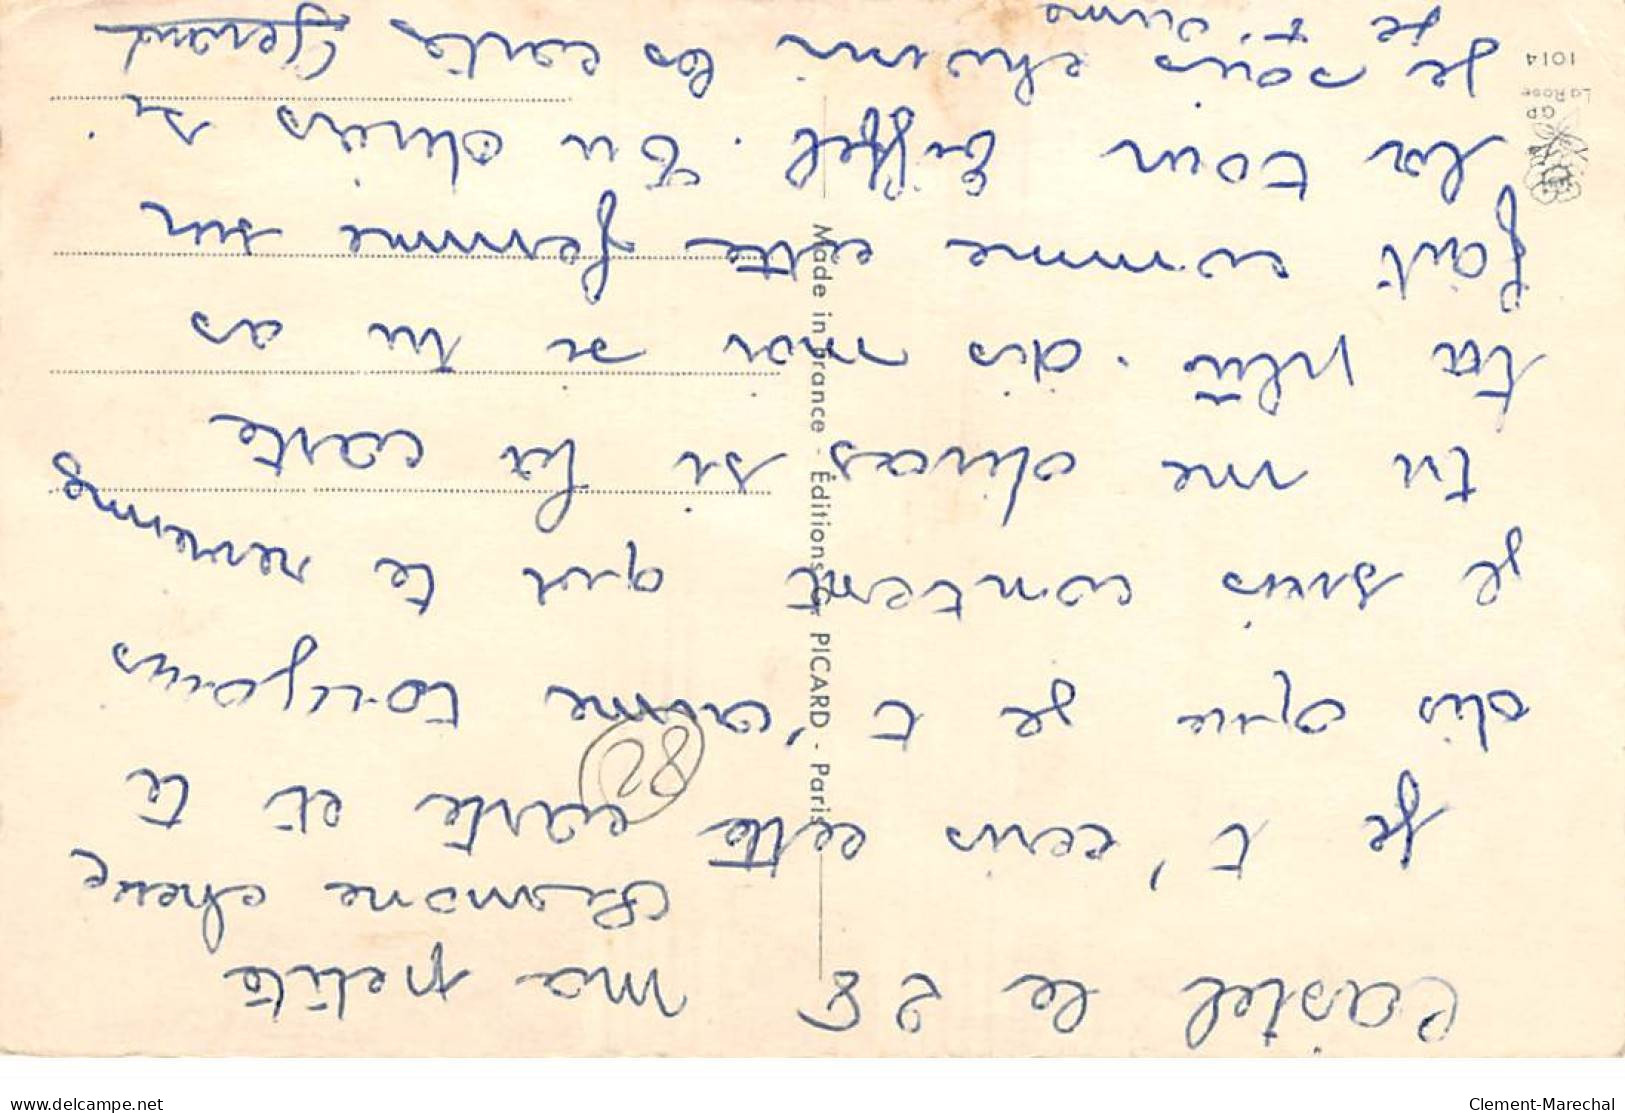 Castel le 28 ma petite
Simone cheri
Je t'ecris cette carte et te
dis que je t'aime toujours
je suis content qui te revienne
tu me diras si la carte
ta plût. dis moi si tu as
fait comme cette femme sur
la tour Eiffel. Tu diras si
je sais choisir les cartes Gerard
je t'aime
82
Made in France - Éditions PICARD - Paris
GP
La Rose
1014
www.delcampe.net
Clement-Marechal